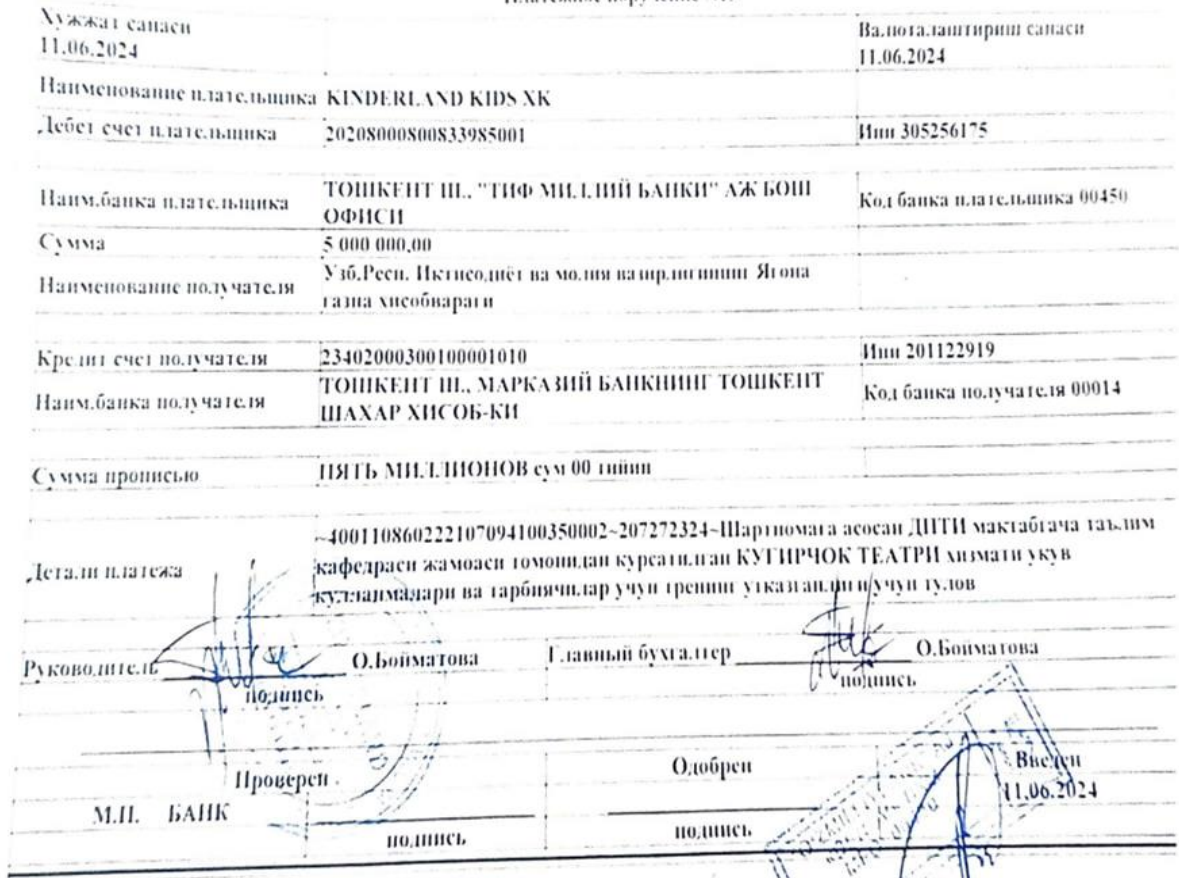 Хужжат санаси
11.06.2024
Валюталаштириш санаси
11.06.2024
Наименование плательщика KINDERLAND KIDS XK
Дебет счет плательщика 20208000800833985001 Инн 305256175
Наим.банка плательщика ТОШКЕНТ Ш., "ТИФ МИЛЛИЙ БАНКИ" АЖ БОШ ОФИСИ Код банка плательщика 00450
Сумма 5 000 000,00
Наименование получателя Узб.Респ. Иктисодиёт ва молия вазирлигининг Ягона
газна хисобвараги
Кредит счет получателя 23402000300100001010 Инн 201122919
Наим.банка получателя ТОШКЕНТ Ш., МАРКАЗИЙ БАНКНИНГ ТОШКЕНТ
ШАХАР ХИСОБ-КИ Код банка получателя 00014
Сумма прописью ПЯТЬ МИЛЛИОНОВ сум 00 тийин
Детали платежа ~400110860222107094100350002~207272324~Шартномага асосан ДПТИ мактабгача таълим
кафедраси жамоаси томонидан курсатилган КУГИРЧОК ТЕАТРИ хизмати укув
кулланмалари ва тарбиячилар учун тренинг утказганлиги учун тулов
Руководитель О.Бойматова Главный бухгалтер О.Бойматова
подпись подпись
Проверен Одобрен Введен
М.П. БАНК 11.06.2024
подпись подпись